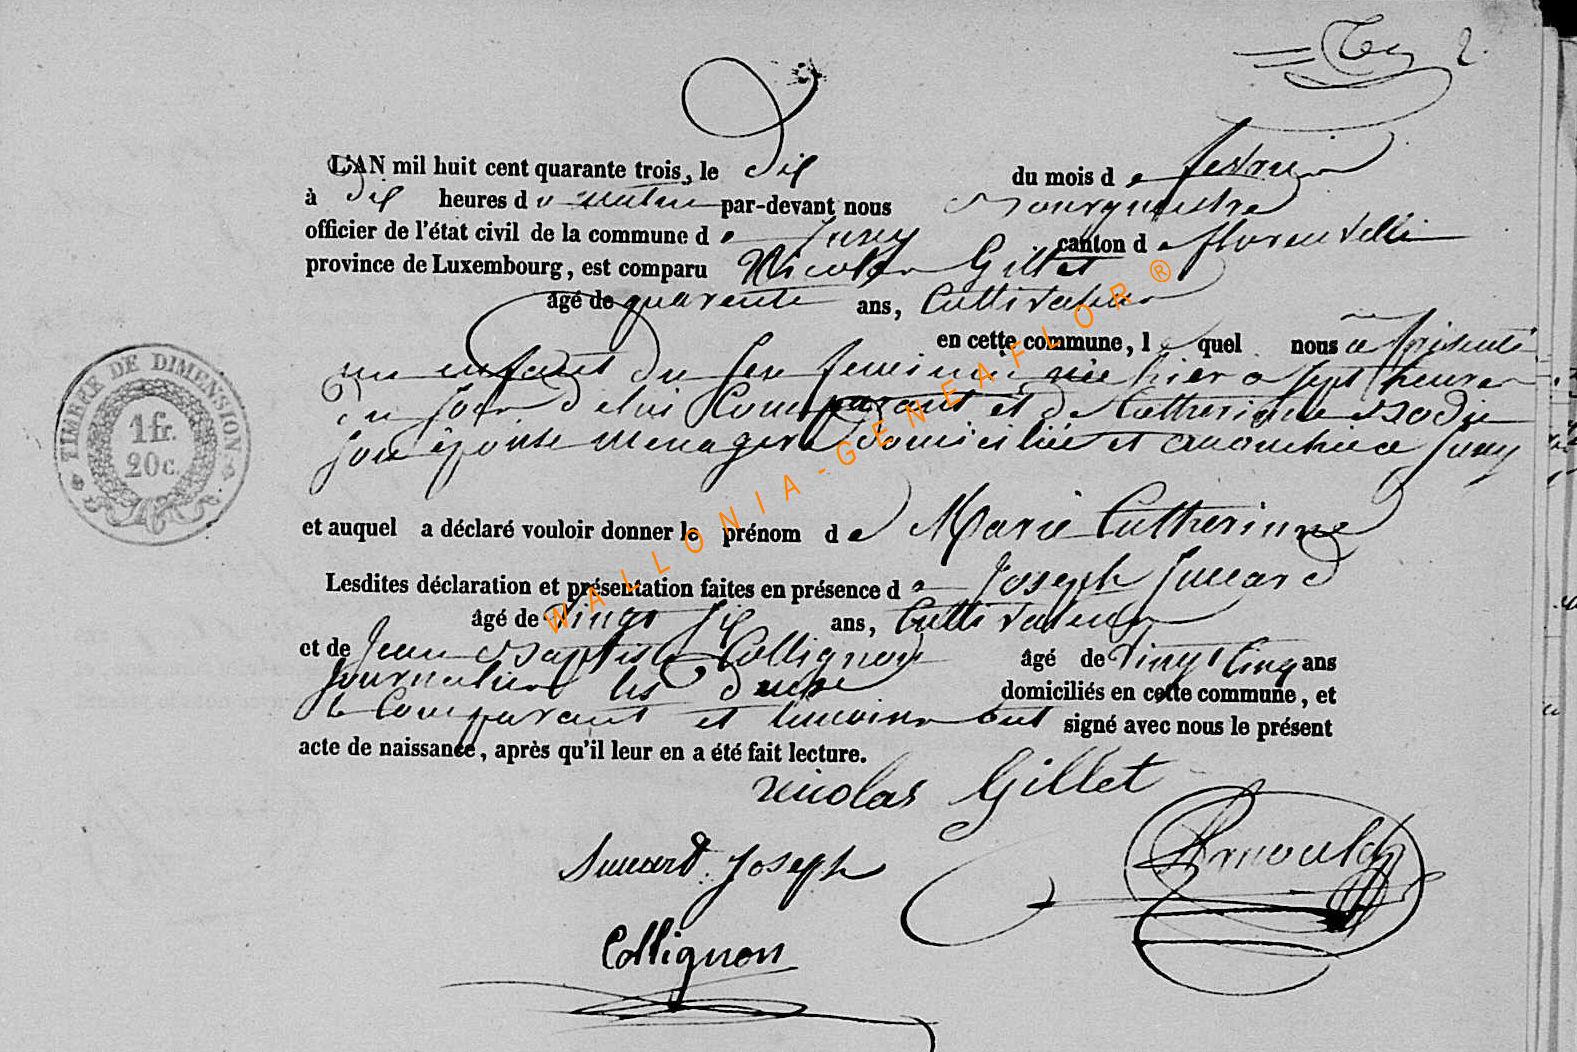 2.
L'AN mil huit cent quarante trois, le Dix du mois de fevrier
à Dix heures du matin par-devant nous Bourgmestre
officier de l'état civil de la commune de Suxy canton de florenville
province de Luxembourg, est comparu Nicolas Gillet
âgé de quarente ans, Cultivateur
en cette commune, lequel nous a présenté
un enfant du sexe feminin née hier a sept heures
du soir de lui Comparant et de Catherinne
son épouse menagere domiciliée et accouchée a Suxy
et auquel a déclaré vouloir donner le prénom de Marie Catherinne
Lesdites déclaration et présentation faites en présence de Joseph
âgé de vingt six ans, Cultivateur
et de Jean Baptiste Collignon âgé de vingt cinq ans
Journalier les deux domiciliés en cette commune, et
le Comparant et temoins ont signé avec nous le présent
acte de naissance, après qu'il leur en a été fait lecture.
nicolas Gillet
Joseph
Arnould
Collignon
TIMBRE DE DIMENSION
1 fr.
20 c.
WALLONIA-GENEAFLOR ®